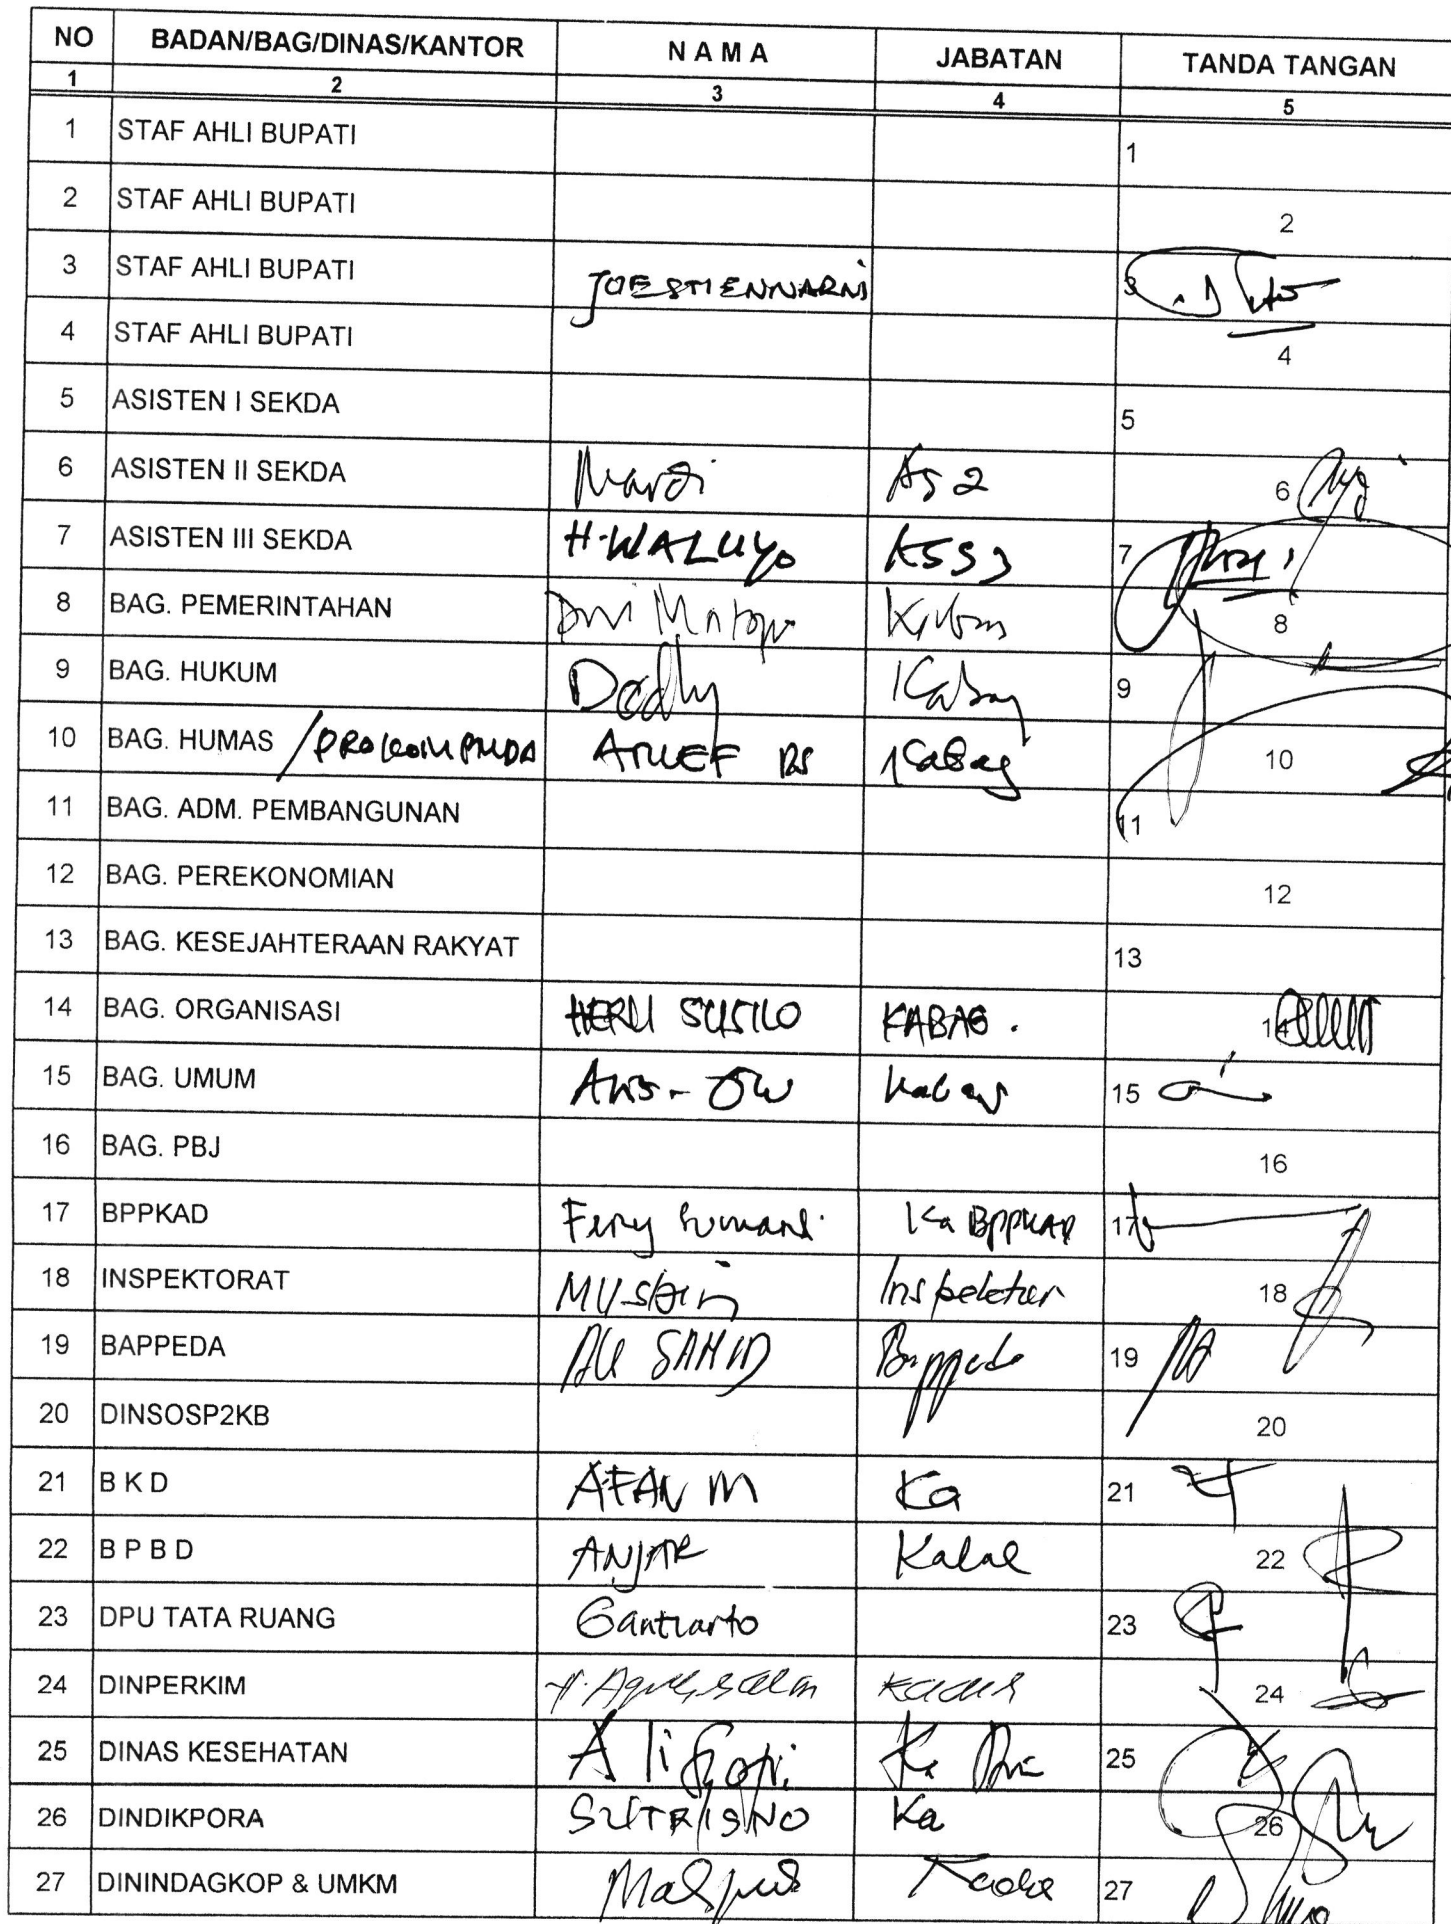 NO BADAN/BAG/DINAS/KANTOR N A M A JABATAN TANDA TANGAN
1 2 3 4 5
1 STAF AHLI BUPATI 1
2 STAF AHLI BUPATI 2
3 STAF AHLI BUPATI JOESTIENNARNI 3
4 STAF AHLI BUPATI 4
5 ASISTEN I SEKDA 5
6 ASISTEN II SEKDA Mardi As 2 6
7 ASISTEN III SEKDA H. WALUYO ASS 3 7
8 BAG. PEMERINTAHAN Dwi 8
9 BAG. HUKUM Doddy Kabag 9
10 BAG. HUMAS /PROKOMPIMDA ARIEF RS Kabag 10
11 BAG. ADM. PEMBANGUNAN 11
12 BAG. PEREKONOMIAN 12
13 BAG. KESEJAHTERAAN RAKYAT 13
14 BAG. ORGANISASI HERU SUSILO KABAG. 14
15 BAG. UMUM Kabag 15
16 BAG. PBJ 16
17 BPPKAD Fery Ka BPPKAD 17
18 INSPEKTORAT Inspektur 18
19 BAPPEDA Bappeda 19
20 DINSOSP2KB 20
21 B K D AFAN M Ka 21
22 B P B D ANJAR Kalak 22
23 DPU TATA RUANG Gantiarto 23
24 DINPERKIM H. Agus Salim 24
25 DINAS KESEHATAN Ali Ka 25
26 DINDIKPORA SUTRISNO Ka 26
27 DININDAGKOP & UMKM 27